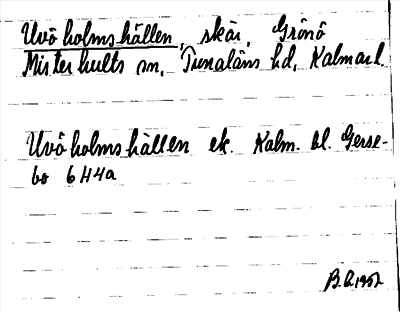 Uvöholmshällen, skär, Grönö
Misterhults sn, Tunaläns hd, Kalmar l.
Uvöholmshällen ek. Kalm. bl. Gerse-
bo 6 H4a
1952